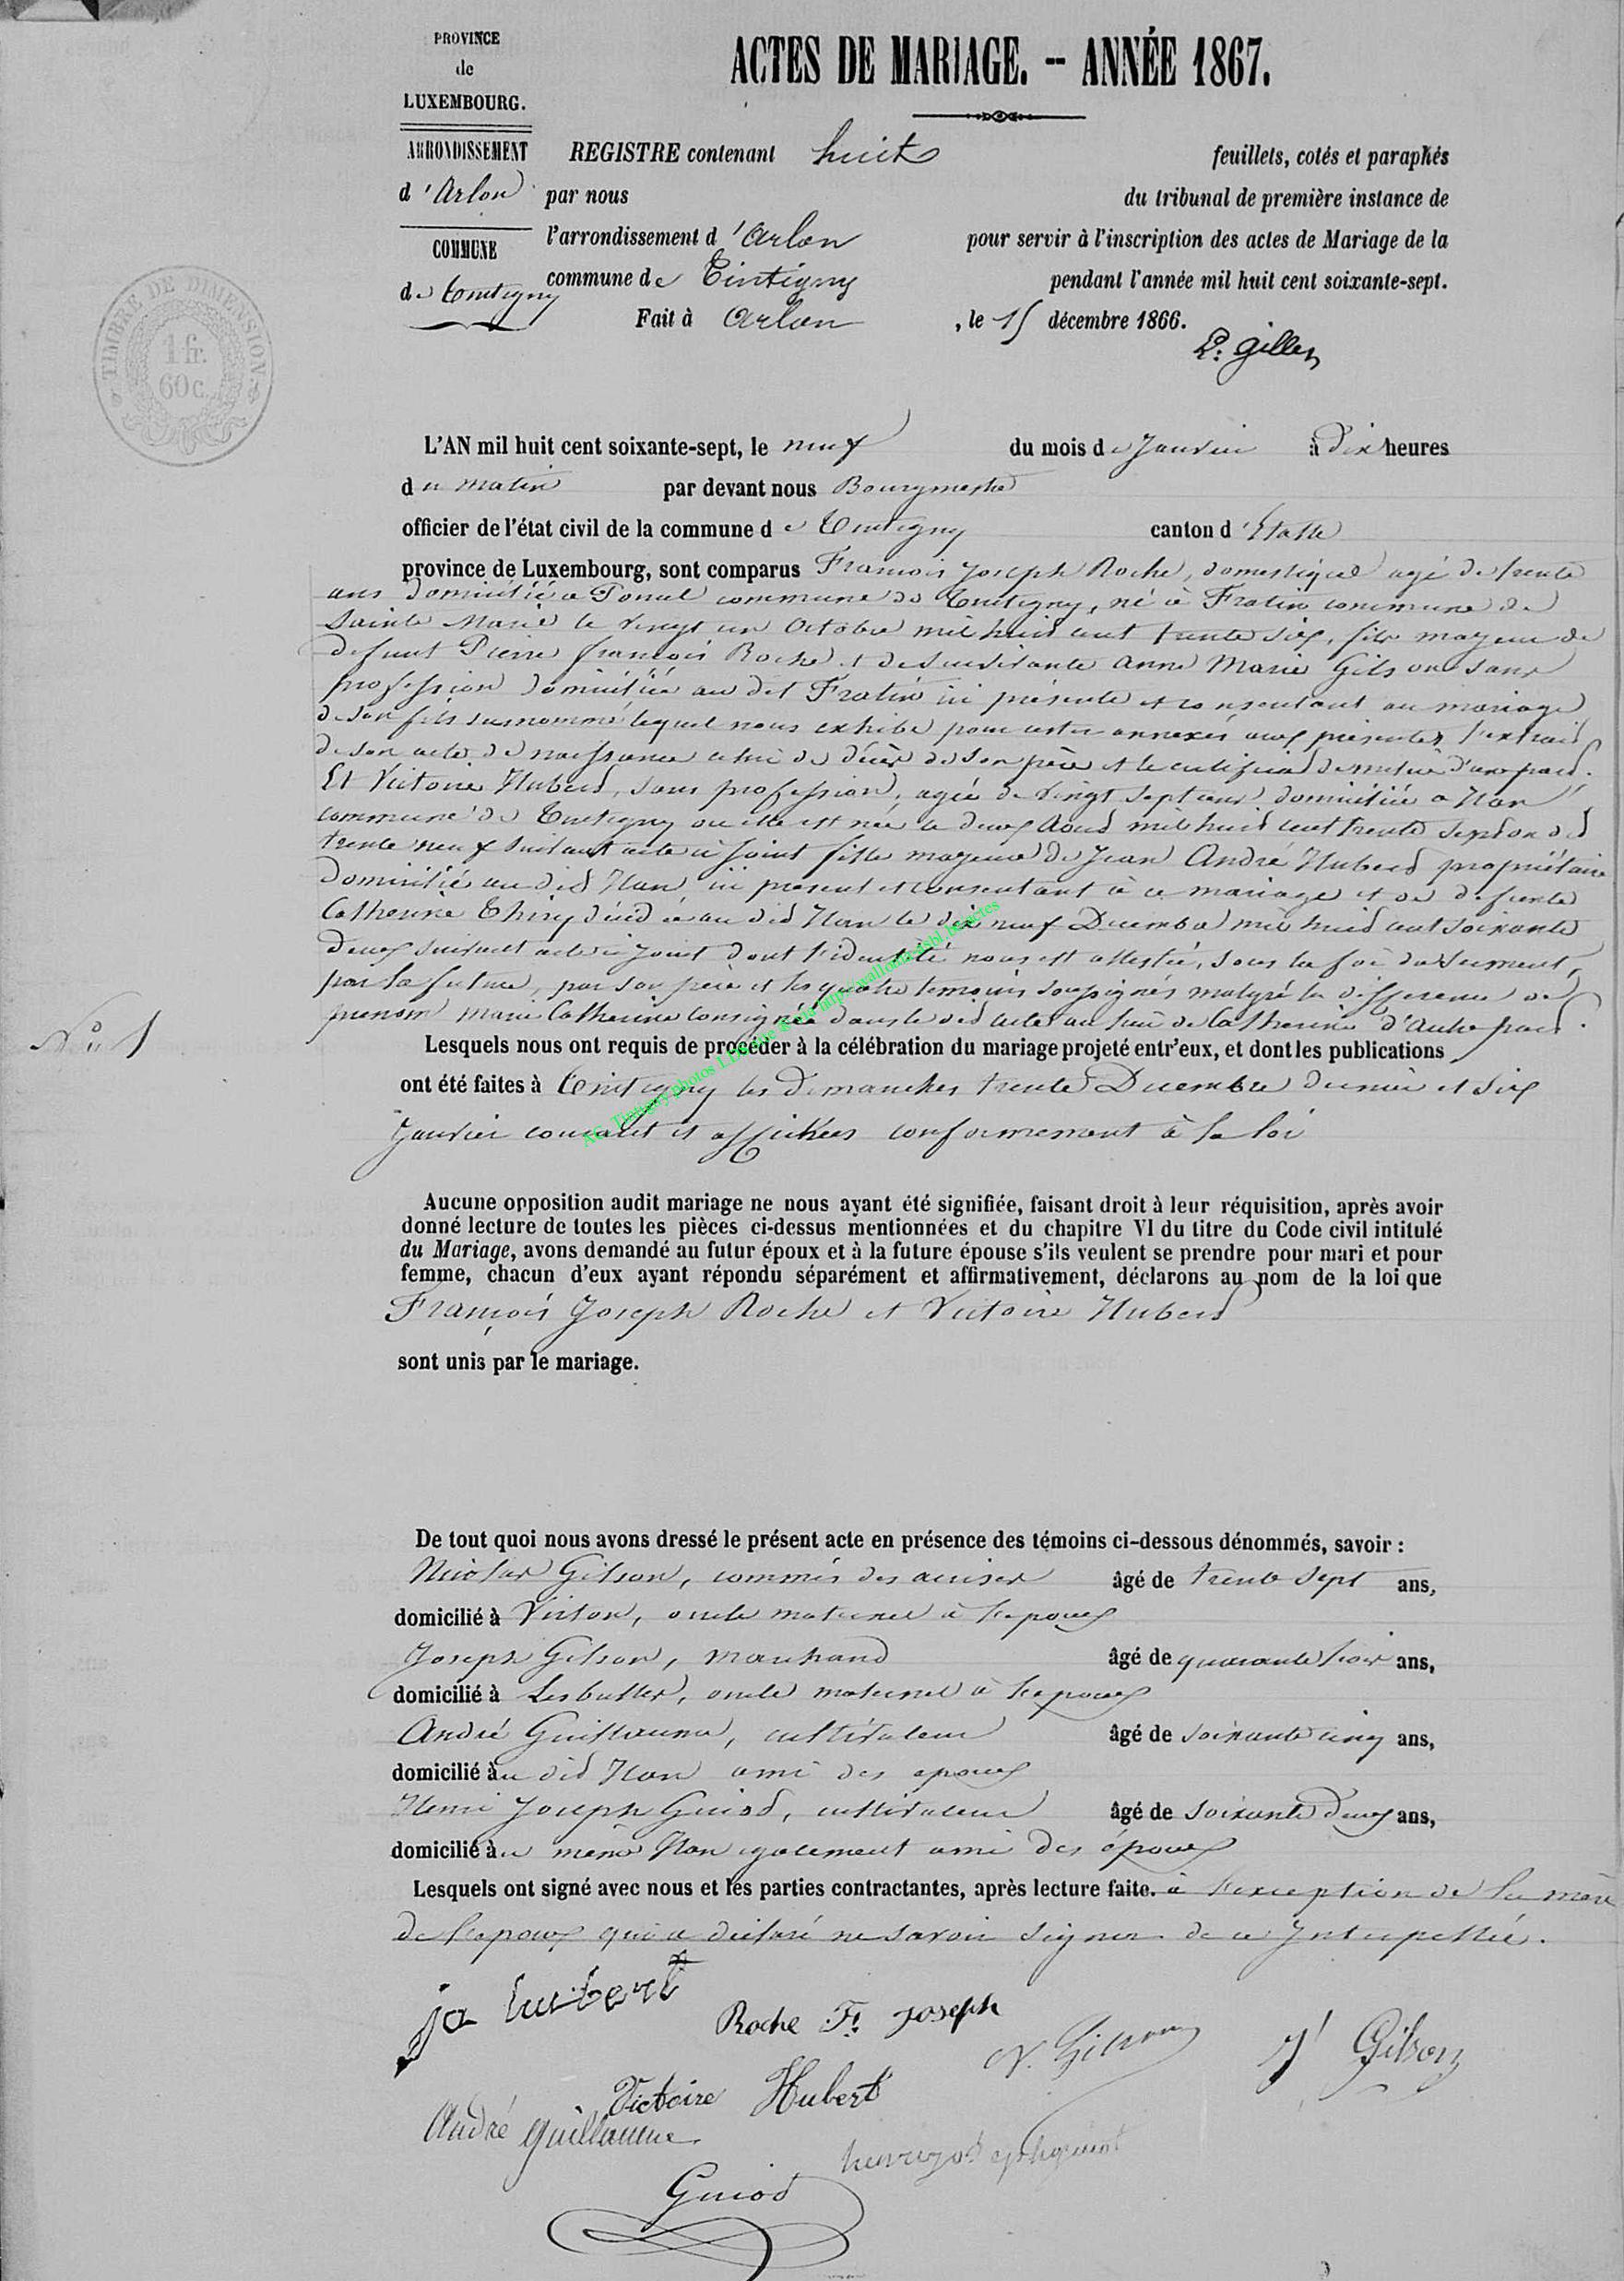 PROVINCE
de
LUXEMBOURG.
ARRONDISSEMENT
d'Arlon
COMMUNE
de Tintigny
ACTES DE MARIAGE. -- ANNÉE 1867.
REGISTRE contenant huit feuillets, cotés et paraphés
par nous du tribunal de première instance de
l'arrondissement d'Arlon pour servir à l'inscription des actes de Mariage de la
commune de Tintigny pendant l'année mil huit cent soixante-sept.
Fait à Arlon, le 15 décembre 1866.
TIMBRE DE DIMENSION
1 fr.
60 c.
L'AN mil huit cent soixante-sept, le neuf du mois de Janvier à dix heures
du matin par devant nous Bourgmestre
officier de l'état civil de la commune de Tintigny canton d'Etalle
province de Luxembourg, sont comparus François Joseph Roche, domestique agé de trente
ans domicilié à Poncel commune de Tintigny, né à Fratin commune de
Sainte Marie le vingt un Octobre mil huit cent trente six, fils majeur de
defunt Pierre françois Roche et de survivante Anne Marie Gilson sans
profession domiciliée au dit Fratin ici présente et consentant au mariage
de son fils susnommé lequel nous exhibe pour rester annexés aux présentes l'extrait
de son acte de naissance celui de décès de son père et le certificat de milice d'une part.
Et Victoire Hubert, sans profession, agée de vingt sept ans domiciliée à Han
commune de Tintigny où elle est née le deux Aout mil huit cent trente
trente neuf suivant acte ci joint fille majeure de Jean André Hubert propriétaire
domicilié au dit Han ici présent et consentant à ce mariage et de defunte
Catherine Thiry décédée au dit Han le dix neuf Decembre mil huit cent soixante
deux suivant acte ci joint dont l'identité nous est attestée, sous la foi du serment,
par la future, par son père et les quatre temoins soussignés malgré la difference de
prenom Marie Catherine consignée dans le dit acte au lieu de Catherine d'autre part.
No 1
Lesquels nous ont requis de procéder à la célébration du mariage projeté entr'eux, et dont les publications
ont été faites à Tintigny les dimanches trente Decembre dernier et six
Janvier courant et affichées conformement à la loi
Aucune opposition audit mariage ne nous ayant été signifiée, faisant droit à leur réquisition, après avoir
donné lecture de toutes les pièces ci-dessus mentionnées et du chapitre VI du titre du Code civil intitulé
du Mariage, avons demandé au futur époux et à la future épouse s'ils veulent se prendre pour mari et pour
femme, chacun d'eux ayant répondu séparément et affirmativement, déclarons au nom de la loi que
François Joseph Roche et Victoire Hubert
sont unis par le mariage.
De tout quoi nous avons dressé le présent acte en présence des témoins ci-dessous dénommés, savoir :
Nicolas Gilson, commis des accises âgé de trente sept ans,
domicilié à Virton, oncle maternel à l'epoux
Joseph Gilson, marchand âgé de quarante trois ans,
domicilié à Lesbulles, oncle maternel à l'epoux
André Guillaume, cultivateur âgé de soixante cinq ans,
domicilié àu dit Han ami des epoux
Henri Joseph Guiod, cultivateur âgé de soixante deux ans,
domicilié àu même Han egalement ami des époux
Lesquels ont signé avec nous et les parties contractantes, après lecture faite. à l'exception de la mère
de l'epoux qui a déclaré ne savoir signer de ce Interpellée.
ja hubert
Roche F. Joseph
N. Gilson
J Gilson
Victoire Hubert
André Guillaume
Guiod